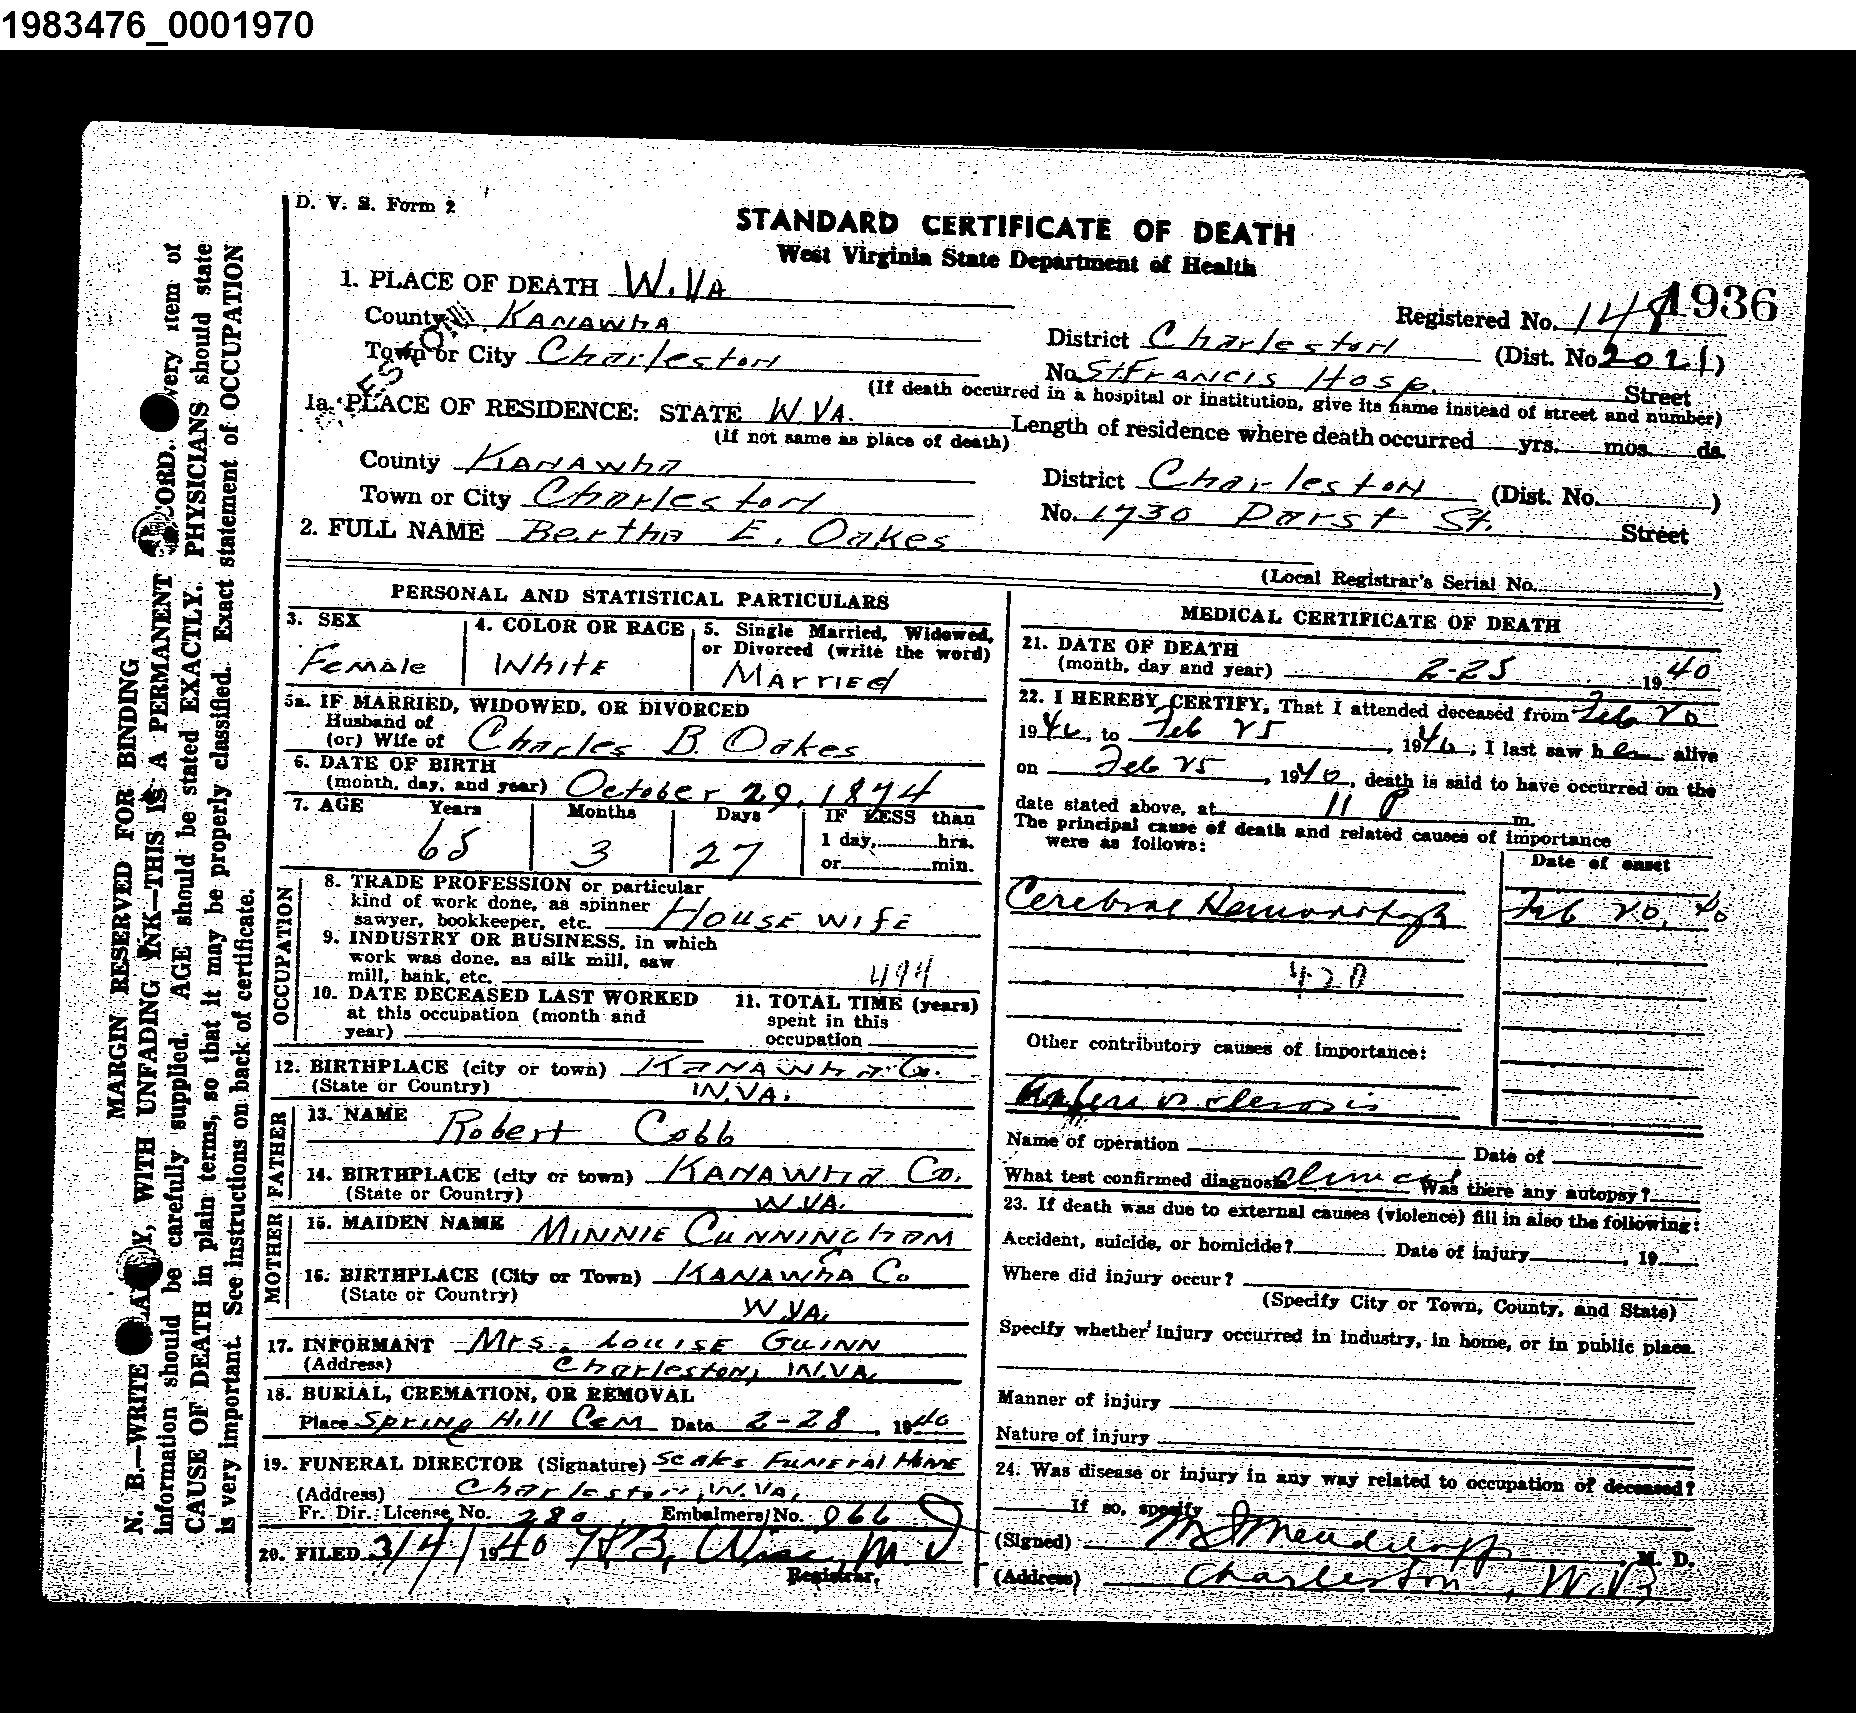 1983476_0001970
D. V. S. Form 2
STANDARD CERTIFICATE OF DEATH
West Virginia State Department of Health
1. PLACE OF DEATH W.VA
1936
County KANAWHA
Registered No. 148
Town or City Charleston
District Charleston (Dist. No. 2021)
No. St. FRANCIS Hosp. Street
(If death occurred in a hospital or institution, give its name instead of street and number)
1a. PLACE OF RESIDENCE: STATE W VA.
(If not same as place of death)
Length of residence where death occurred yrs. mos. ds.
County KANAWHA
Town or City Charleston
District Charleston (Dist. No. )
No. 1730 Darst St. Street
2. FULL NAME Bertha E. Oakes
(Local Registrar's Serial No. )
PERSONAL AND STATISTICAL PARTICULARS
3. SEX
Female
4. COLOR OR RACE
White
5. Single Married, Widowed,
or Divorced (write the word)
Married
5a. IF MARRIED, WIDOWED, OR DIVORCED
Husband of
(or) Wife of Charles B. Oakes
6. DATE OF BIRTH
(month, day, and year) October 29, 1874
7. AGE Years Months Days IF LESS than
65 3 27 1 day, hrs.
or min.
OCCUPATION
8. TRADE PROFESSION or particular
kind of work done, as spinner
sawyer, bookkeeper, etc. House wife
9. INDUSTRY OR BUSINESS, in which
work was done, as silk mill, saw
mill, bank, etc. 494
10. DATE DECEASED LAST WORKED
at this occupation (month and
year)
11. TOTAL TIME (years)
spent in this
occupation
12. BIRTHPLACE (city or town) KANAWHA Co.
(State or Country) W.VA.
FATHER
13. NAME Robert Cobb
14. BIRTHPLACE (city or town) KANAWHA Co.
(State or Country) W.VA.
MOTHER
15. MAIDEN NAME MINNIE CUNNINGHAM
16. BIRTHPLACE (City or Town) KANAWHA Co
(State or Country) W.VA.
17. INFORMANT Mrs. Louise Guinn
(Address) Charleston, W.VA.
18. BURIAL, CREMATION, OR REMOVAL
Place Spring Hill Cem Date 2-28, 1940
19. FUNERAL DIRECTOR (Signature) Funeral Home
(Address) Charleston, W.VA.
Fr. Dir. License No. 280 Embalmers No. 066
20. FILED 3/4/ 1940 M.D.
Registrar.
MEDICAL CERTIFICATE OF DEATH
21. DATE OF DEATH
(month, day and year) 2-25 1940
22. I HEREBY CERTIFY, That I attended deceased from Feb 20
1940, to Feb 25, 1940; I last saw her alive
on Feb 25, 1940, death is said to have occurred on the
date stated above, at 11 P m.
The principal cause of death and related causes of importance
were as follows:
Date of onset
Cerebral Hemorrhage Feb 20, 40
420
Other contributory causes of importance:
Name of operation Date of
What test confirmed diagnosis clinical Was there any autopsy?
23. If death was due to external causes (violence) fill in also the following:
Accident, suicide, or homicide? Date of injury , 19
Where did injury occur?
(Specify City or Town, County, and State)
Specify whether injury occurred in industry, in home, or in public place.
Manner of injury
Nature of injury
24. Was disease or injury in any way related to occupation of deceased?
If so, specify
(Signed) M. D.
(Address) Charleston, W.Va
MARGIN RESERVED FOR BINDING
N. B.—WRITE WITH UNFADING INK—THIS IS A PERMANENT item of
information should be carefully supplied. AGE should be stated EXACTLY. PHYSICIANS should state
CAUSE OF DEATH in plain terms, so that it may be properly classified. Exact statement of OCCUPATION
is very important. See instructions on back of certificate.